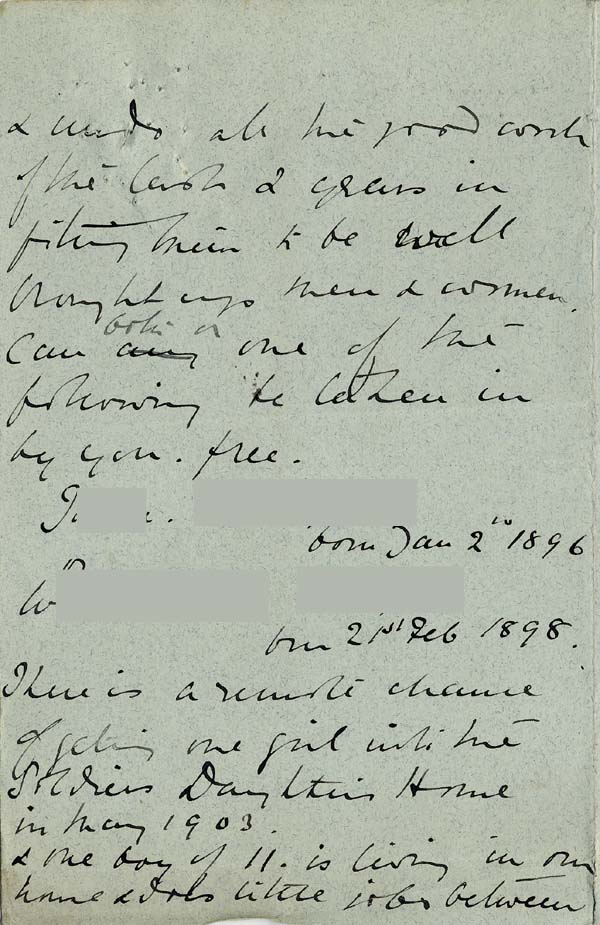 & undo all the good work
of the last 2 years in
fitting them to be well
brought up men & women.
Can any both or one of the
following be taken in
by you. free.
J
born Jan 2nd 1896
W
born 21st Feb 1898.
There is a remote chance
of getting one girl into the
Soldiers Daughters Home
in May 1903.
& one boy of 11. is living in our
home & does little jobs between